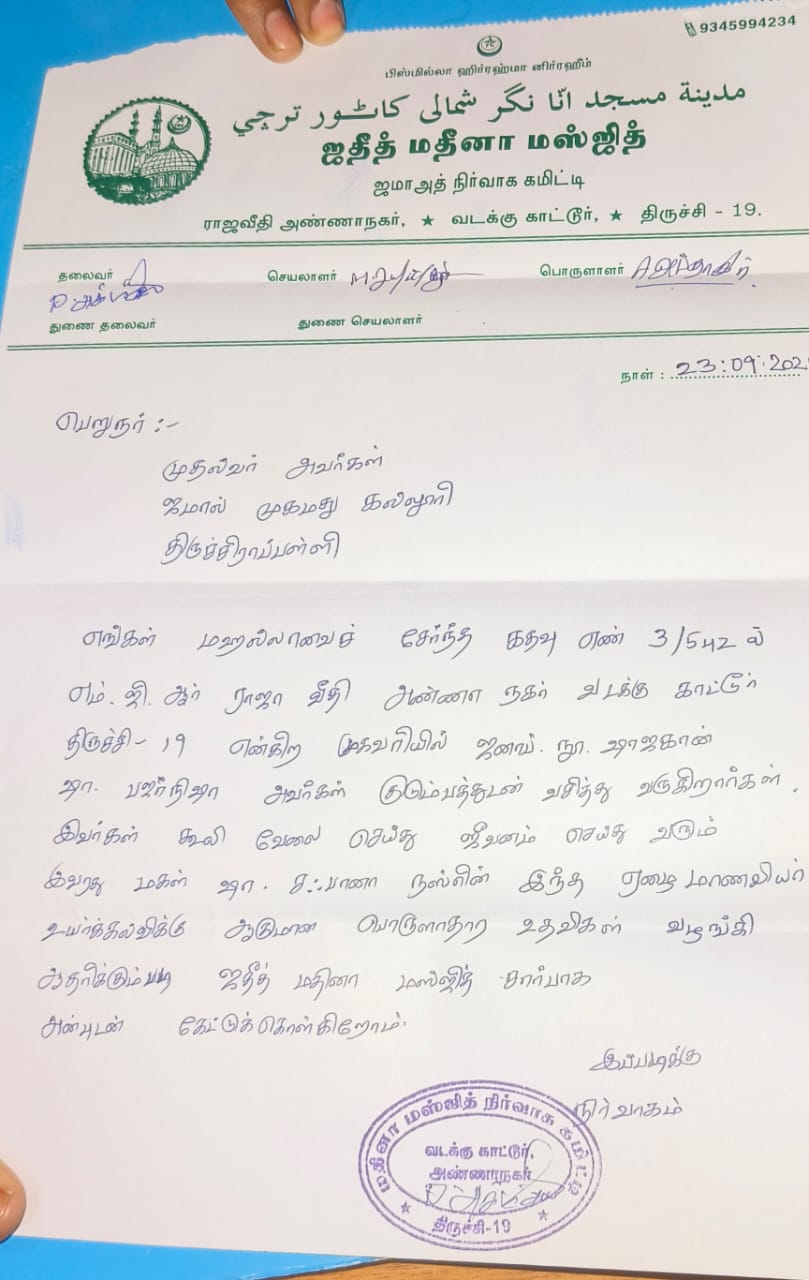 9345994234
பிஸ்மில்லா ஹிர்ரஹ்மா னிர்ரஹீம்
مدينة مسجد انّا نگر شمالی کاٹور ترچی
ஜதீத் மதீனா மஸ்ஜித்
ஜமாஅத் நிர்வாக கமிட்டி
ராஜவீதி அண்ணாநகர், ★ வடக்கு காட்டூர், ★ திருச்சி - 19.
தலைவர் செயலாளர் பொருளாளர்
துணை தலைவர் துணை செயலாளர்
நாள் : 23:09:202
பெறுநர் :-
முதல்வர் அவர்கள்
ஜமால் முகமது கல்லூரி
திருச்சிராப்பள்ளி
எங்கள் மஹல்லாவைச் சேர்ந்த கதவு எண் 3/542 ல்
எம். ஜி. ஆர் ராஜா வீதி அண்ணா நகர் வடக்கு காட்டூர்
திருச்சி - 19 என்கிற முகவரியில் ஜனாப். நூ. ஷாஜகான்
ஷா. பஜர்நிஷா அவர்கள் குடும்பத்துடன் வசித்து வருகிறார்கள்.
இவர்கள் கூலி வேலை செய்து ஜீவனம் செய்து வரும்
இவரது மகள் ஷா. சஃபானா நஸ்ரின் இந்த ஏழை மாணவியர்
உயர்க்கல்விக்கு ஆகுமான பொருளாதார உதவிகள் வழங்கி
ஆதரிக்கும்படி ஜதீத் மதினா மஸ்ஜித் சார்பாக
அன்புடன் கேட்டுக்கொள்கிறோம்.
இப்படிக்கு
நிர்வாகம்
மதீனா மஸ்ஜித் நிர்வாக கமிட்டி
வடக்கு காட்டூர்,
அண்ணாநகர்
★ திருச்சி-19 ★